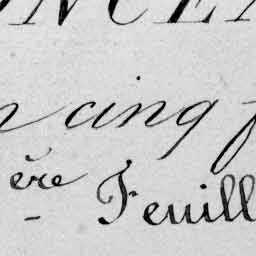 ONCE
cinq f
ère Feuill